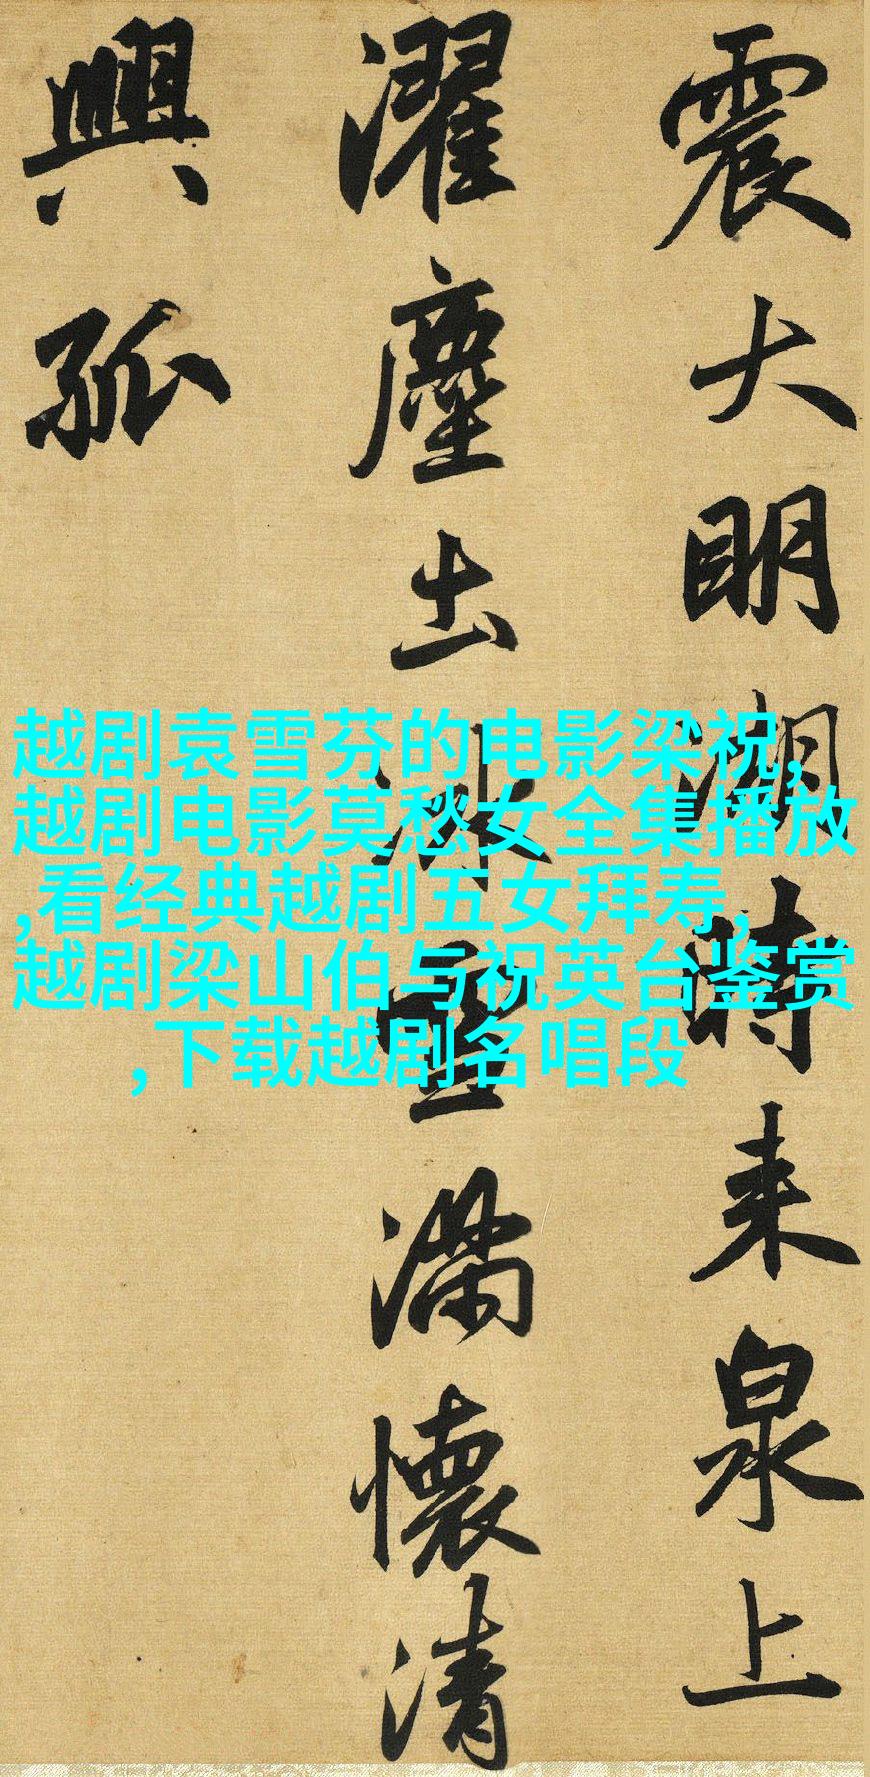 震大明湖時来泉上
濯塵土冰雪滿懷清
興孤
越剧袁雪芬的电影梁祝,
越剧电影莫愁女全集播放
,看经典越剧五女拜寿,
越剧梁山伯与祝英台鉴赏
,下载越剧名唱段